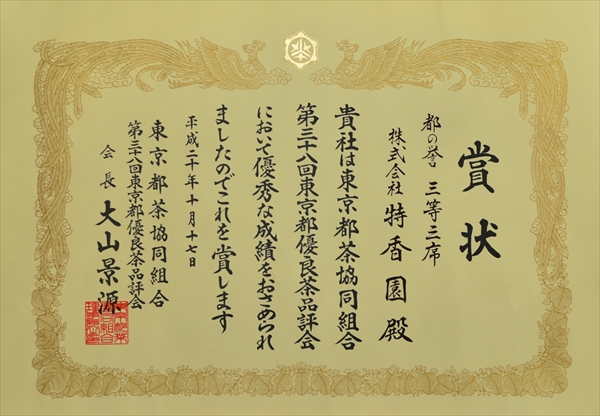 賞状
都の誉 三等三席
株式会社 特香園殿
貴社は東京都茶協同組合
第三十八回東京都優良茶品評会
において優秀な成績をおさめられ
ましたのでこれを賞します
平成二十年十月十七日
東京都茶協同組合
第三十八回東京都優良茶品評会
会長 大山景源